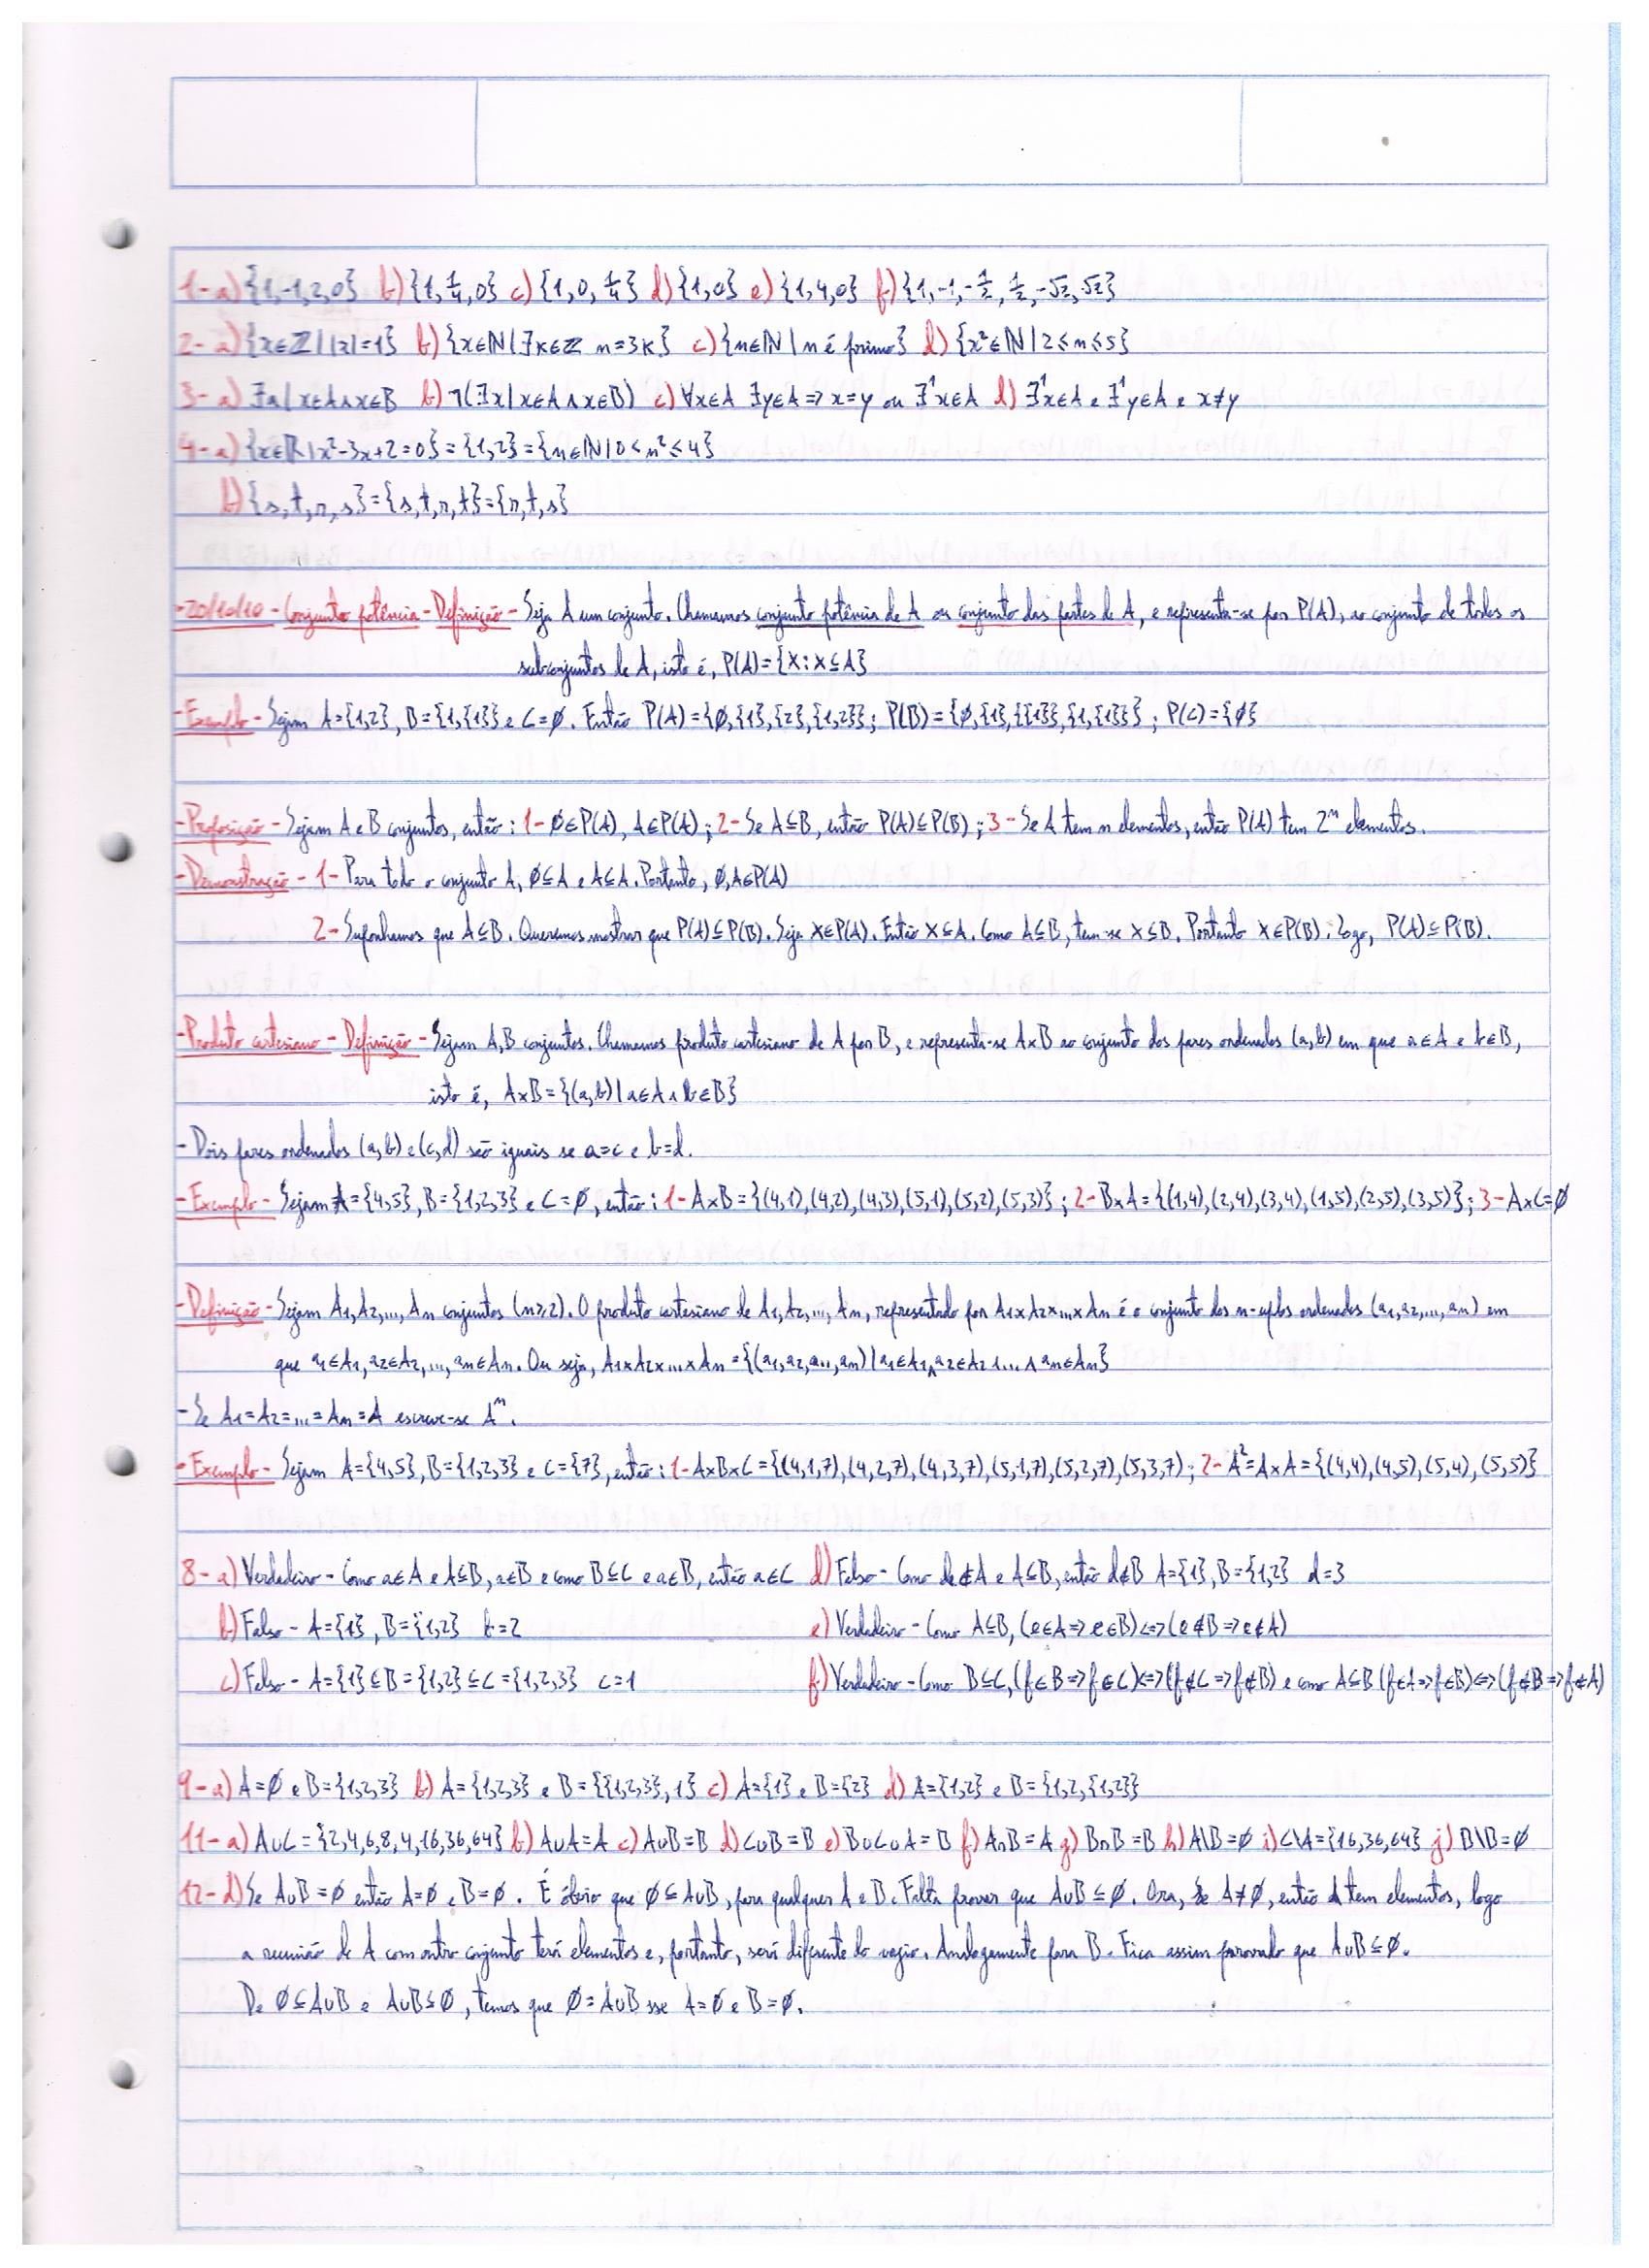 1-a) {1,-1,2,0} b) {1,1/4,0} c) {1,0,1/4} d) {1,0} e) {1,4,0} f) {1,-1,-1/2,1/2,-√2,√2}
2-a) {x∈ℤ||x|=1} b) {x∈ℕ|∃k∈ℤ n=3k} c) {n∈ℕ|n é primo} d) {x²∈ℕ|2≤n≤5}
3-a) ∃x|x∈A∧x∈B b) ¬(∃x|x∈A∧x∈B) c) ∀x∈A ∃y∈A⇒x=y ou ∃¹x∈A d) ∃¹x∈A e ∃¹y∈A e x≠y
4-a) {x∈ℝ|x²-3x+2=0}={1,2}={n∈ℕ|0<n²≤4}
b) {s,t,r,s}={s,t,r,t}={r,t,s}
-20/10/10-Conjunto potência-Definição-Seja A um conjunto. Chamamos conjunto potência de A ou conjunto das partes de A, e representa-se por P(A), ao conjunto de todos os
subconjuntos de A, isto é, P(A)={X:X⊆A}
-Exemplo-Sejam A={1,2}, B={1,{1}} e C=∅. Então P(A)={∅,{1},{2},{1,2}}; P(B)={∅,{1},{{1}},{1,{1}}}; P(C)={∅}
-Proposição-Sejam A e B conjuntos, então: 1-∅∈P(A), A∈P(A); 2-Se A⊆B, então P(A)⊆P(B); 3-Se A tem n elementos, então P(A) tem 2ⁿ elementos.
-Demonstração-1-Para todo o conjunto A, ∅⊆A e A⊆A. Portanto, ∅,A∈P(A)
2-Suponhamos que A⊆B. Queremos mostrar que P(A)⊆P(B). Seja X∈P(A). Então X⊆A. Como A⊆B, tem-se X⊆B. Portanto X∈P(B). Logo, P(A)⊆P(B).
-Produto cartesiano-Definição-Sejam A,B conjuntos. Chamamos produto cartesiano de A por B, e representa-se A×B ao conjunto dos pares ordenados (a,b) em que a∈A e b∈B,
isto é, A×B={(a,b)|a∈A∧b∈B}
-Dois pares ordenados (a,b) e (c,d) são iguais se a=c e b=d.
-Exemplo-Sejam A={4,5}, B={1,2,3} e C=∅, então: 1-A×B={(4,1),(4,2),(4,3),(5,1),(5,2),(5,3)}; 2-B×A={(1,4),(2,4),(3,4),(1,5),(2,5),(3,5)}; 3-A×C=∅
-Definição-Sejam A1,A2,...,An conjuntos (n≥2). O produto cartesiano de A1,A2,...,An, representado por A1×A2×...×An é o conjunto dos n-uplos ordenados (a1,a2,...,an) em
que a1∈A1,a2∈A2,...,an∈An. Ou seja, A1×A2×...×An={(a1,a2,a..,an)|a1∈A1∧a2∈A2∧...∧an∈An}
-Se A1=A2=...=An=A escreve-se Aⁿ.
-Exemplo-Sejam A={4,5}, B={1,2,3} e C={7}, então: 1-A×B×C={(4,1,7),(4,2,7),(4,3,7),(5,1,7),(5,2,7),(5,3,7); 2-A²=A×A={(4,4),(4,5),(5,4),(5,5)}
8-a) Verdadeiro-Como a∈A e A⊆B, a∈B e como B⊆C e a∈B, então a∈C d) Falso-Como d∉A e A⊆B, então d∉B A={1}, B={1,2} d=3
b) Falso-A={1}, B={1,2} b=2 e) Verdadeiro-Como A⊆B, (e∈A⇒e∈B)⇔(e∉B⇒e∉A)
c) Falso-A={1}⊆B={1,2}⊆C={1,2,3} c=1 f) Verdadeiro-Como B⊆C, (f∈B⇒f∈C)⇔(f∉C⇒f∉B) e como A⊆B (f∈A⇒f∈B)⇔(f∉B⇒f∉A)
9-a) A=∅ e B={1,2,3} b) A={1,2,3} e B={{1,2,3},1} c) A={1} e B={2} d) A={1,2} e B={1,2,{1,2}}
11-a) A∪C={2,4,6,8,4,16,36,64} b) A∪A=A c) A∪B=B d) C∪B=B e) B∪C∪A=B f) A∩B=A g) B∩B=B h) A\B=∅ i) C\A={16,36,64} j) B\B=∅
12-d) Se A∪B=∅ então A=∅ e B=∅. É óbvio que ∅⊆A∪B, para qualquer A e B. Falta provar que A∪B⊆∅. Ora, se A≠∅, então A tem elementos, logo
a reunião de A com outro conjunto terá elementos e, portanto, será diferente do vazio. Analogamente para B. Fica assim provado que A∪B⊆∅.
De ∅⊆A∪B e A∪B⊆∅, temos que ∅=A∪B sse A=∅ e B=∅.